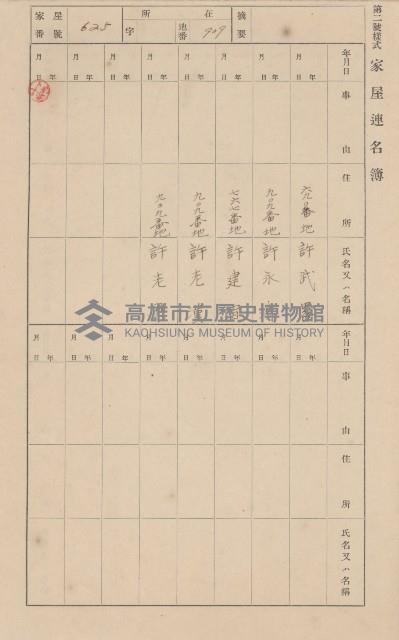 第二號樣式 家屋連名簿
摘要
所在 地番 909
字
家屋番號 625
年月日
事由
住所
氏名又ハ名稱
年 月 日
年 月 日
年 月 日
年 月 日
年 月 日
年 月 日
年 月 日
年 月 日
六九〇番地 許武
九〇九番地 許永
七六七番地 許建
九〇九番地 許老
九〇九番地 許老
高雄市立歷史博物館
KAOHSIUNG MUSEUM OF HISTORY
年月日
事由
住所
氏名又ハ名稱
年 月 日
年 月 日
年 月 日
年 月 日
年 月 日
年 月 日
年 月 日
年 月 日